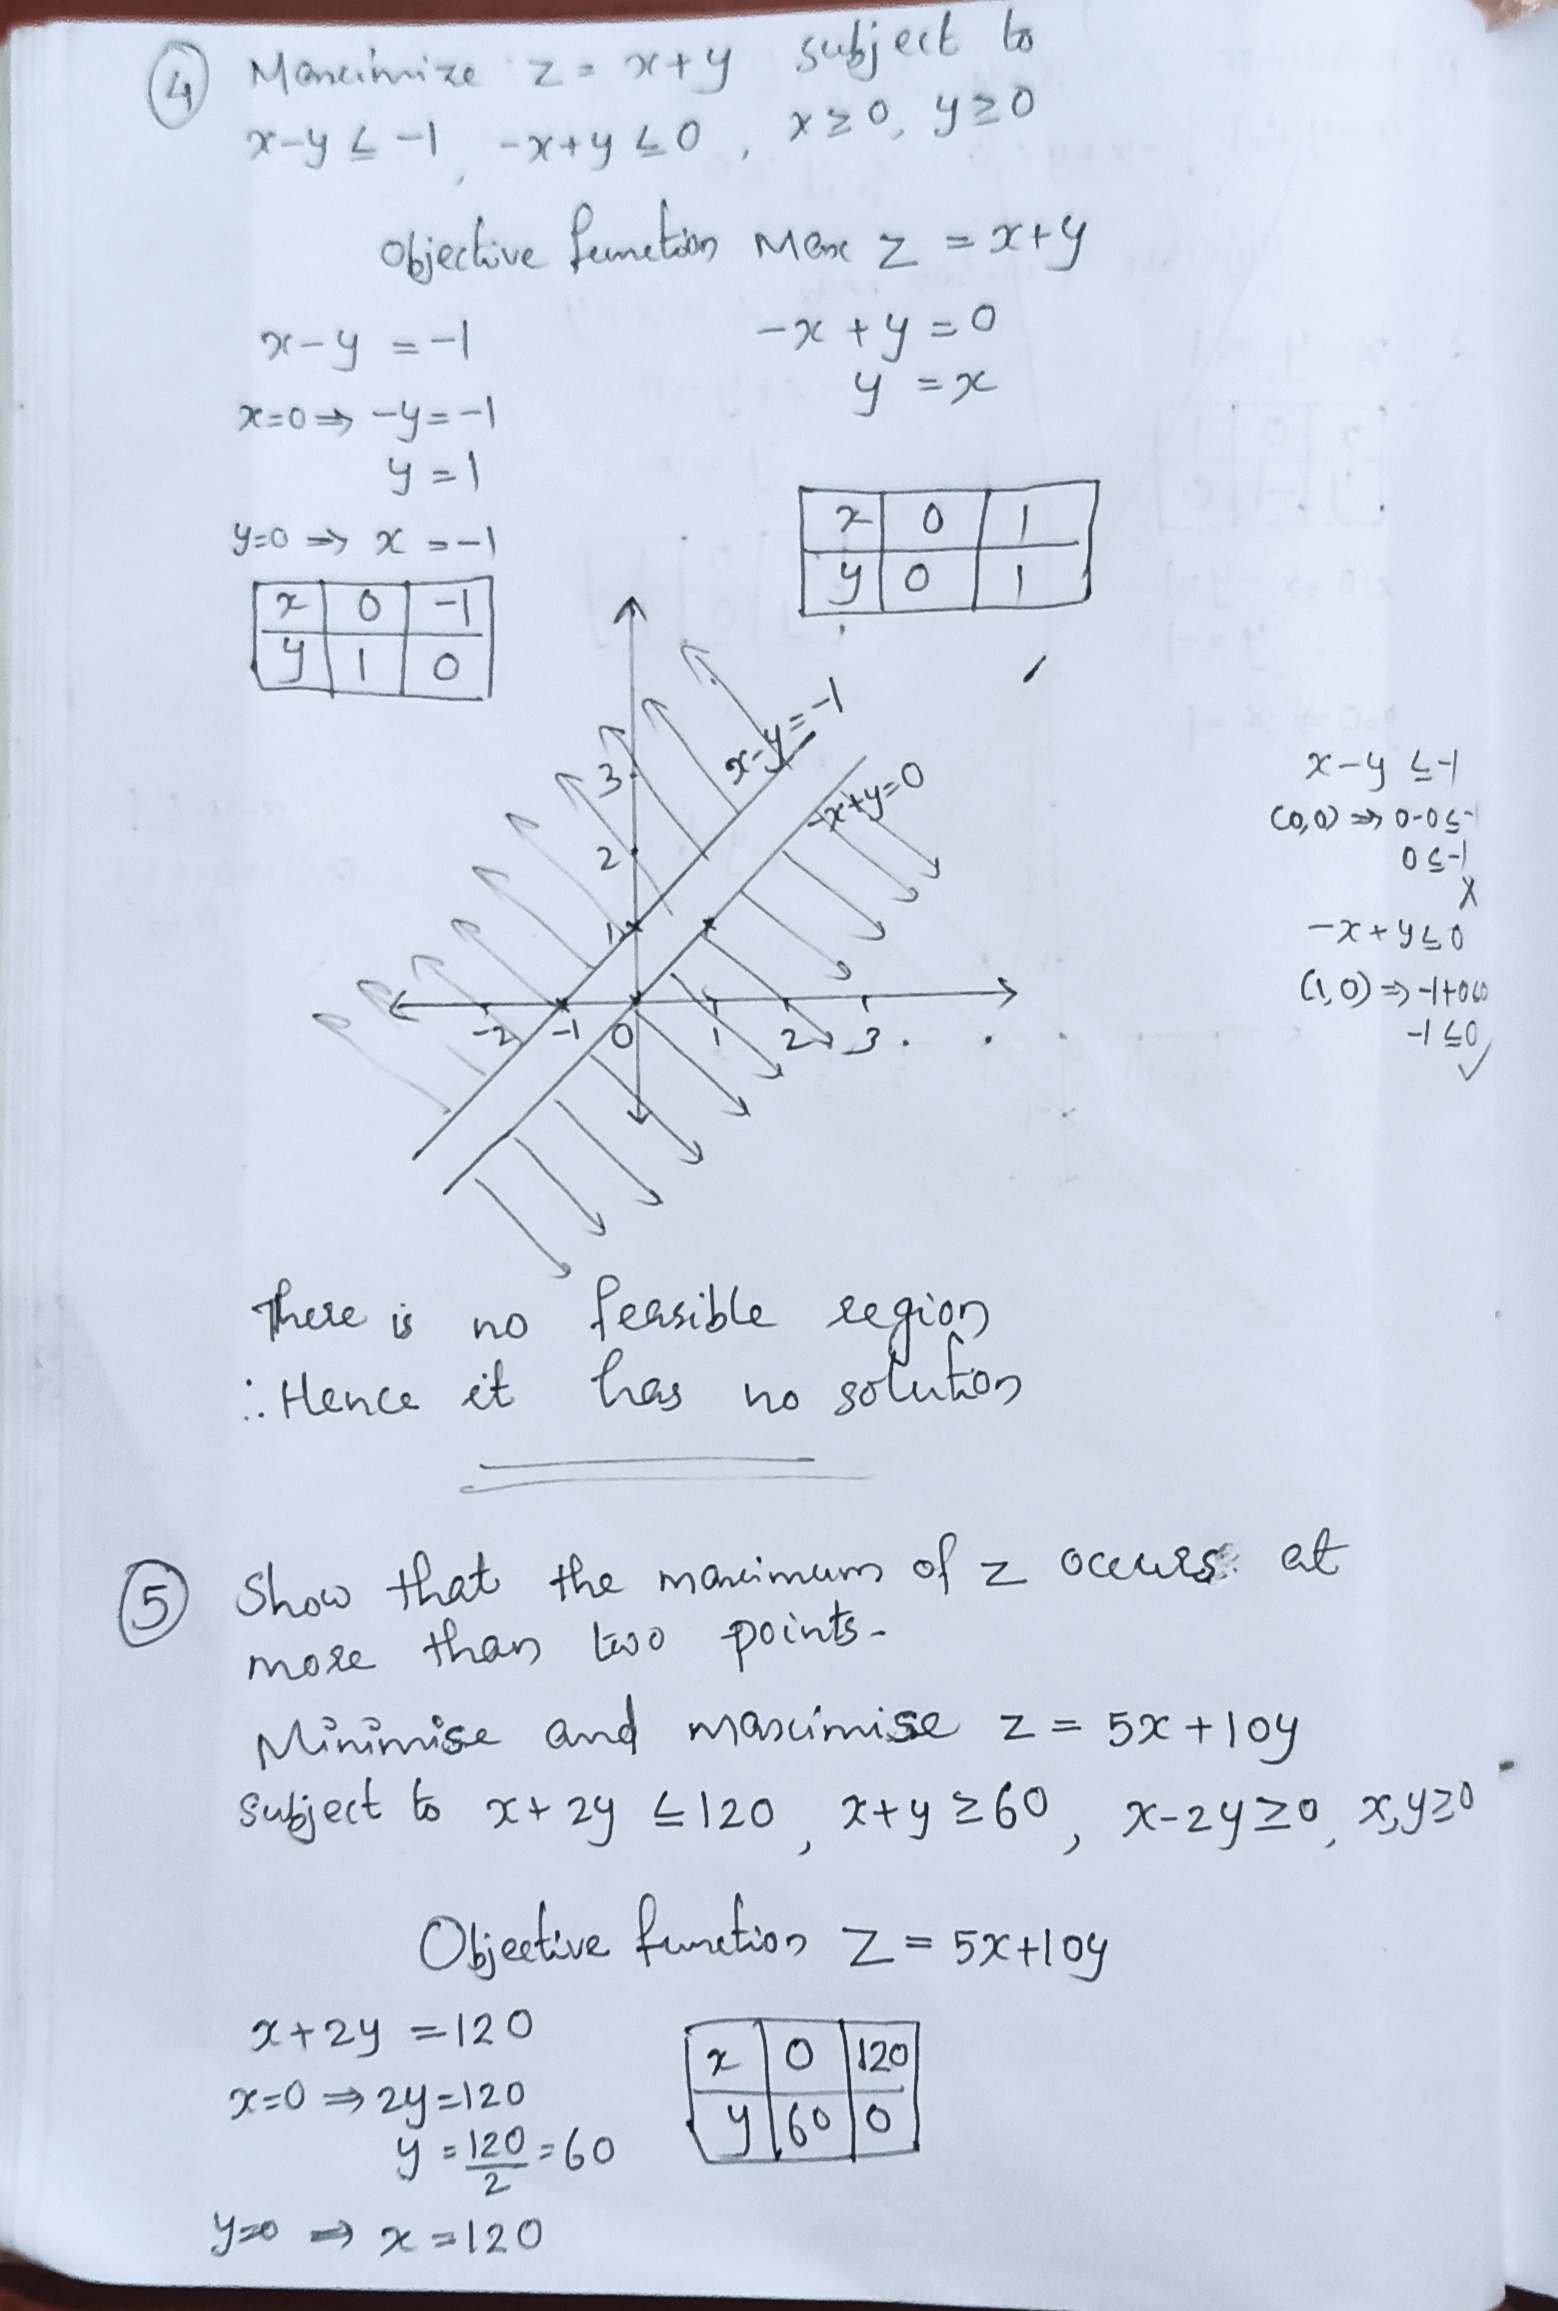 ④ Maximize z = x+y subject to
x-y ≤ -1, -x+y ≤ 0, x ≥ 0, y ≥ 0
Objective function Max z = x+y
x-y = -1
-x+y = 0
x=0 ⇒ -y = -1
y = x
y = 1
y=0 ⇒ x = -1
x 0 1
y 0 1
x 0 -1
y 1 0
x-y = -1
-x+y=0
3
2
1
-2 -1 0 1 2 3
x-y ≤ -1
(0,0) ⇒ 0-0 ≤ -1
0 ≤ -1
X
-x+y ≤ 0
(1,0) ⇒ -1+0 ≤ 0
-1 ≤ 0
✓
There is no feasible region
∴ Hence it has no solution
⑤ Show that the maximum of z occurs at
more than two points.
Minimise and maximise z = 5x+10y
subject to x+2y ≤ 120, x+y ≥ 60, x-2y ≥ 0, x,y ≥ 0
Objective function Z = 5x+10y
x+2y = 120
x=0 ⇒ 2y=120
y = 120/2 = 60
y=0 ⇒ x = 120
x 0 120
y 60 0